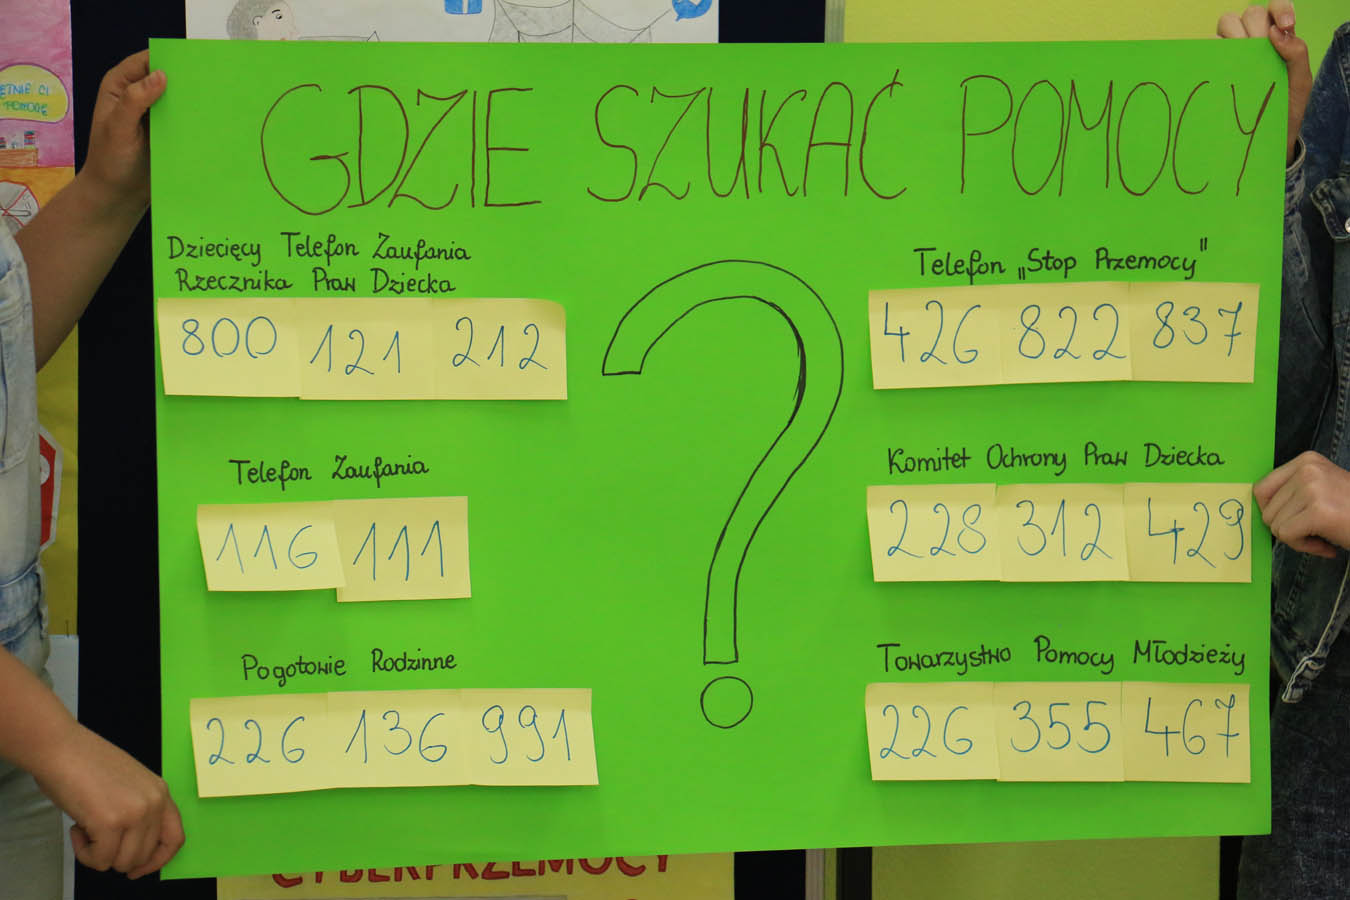 GDZIE SZUKAĆ POMOCY
Dziecięcy Telefon Zaufania
Rzecznika Praw Dziecka
800 121 212
Telefon Zaufania
116 111
Pogotowie Rodzinne
226 136 991
?
Telefon „Stop Przemocy"
426 822 837
Komitet Ochrony Praw Dziecka
228 312 429
Towarzystwo Pomocy Młodzieży
226 355 467
CI
POMOGĘ
CYBERPRZEMOCY